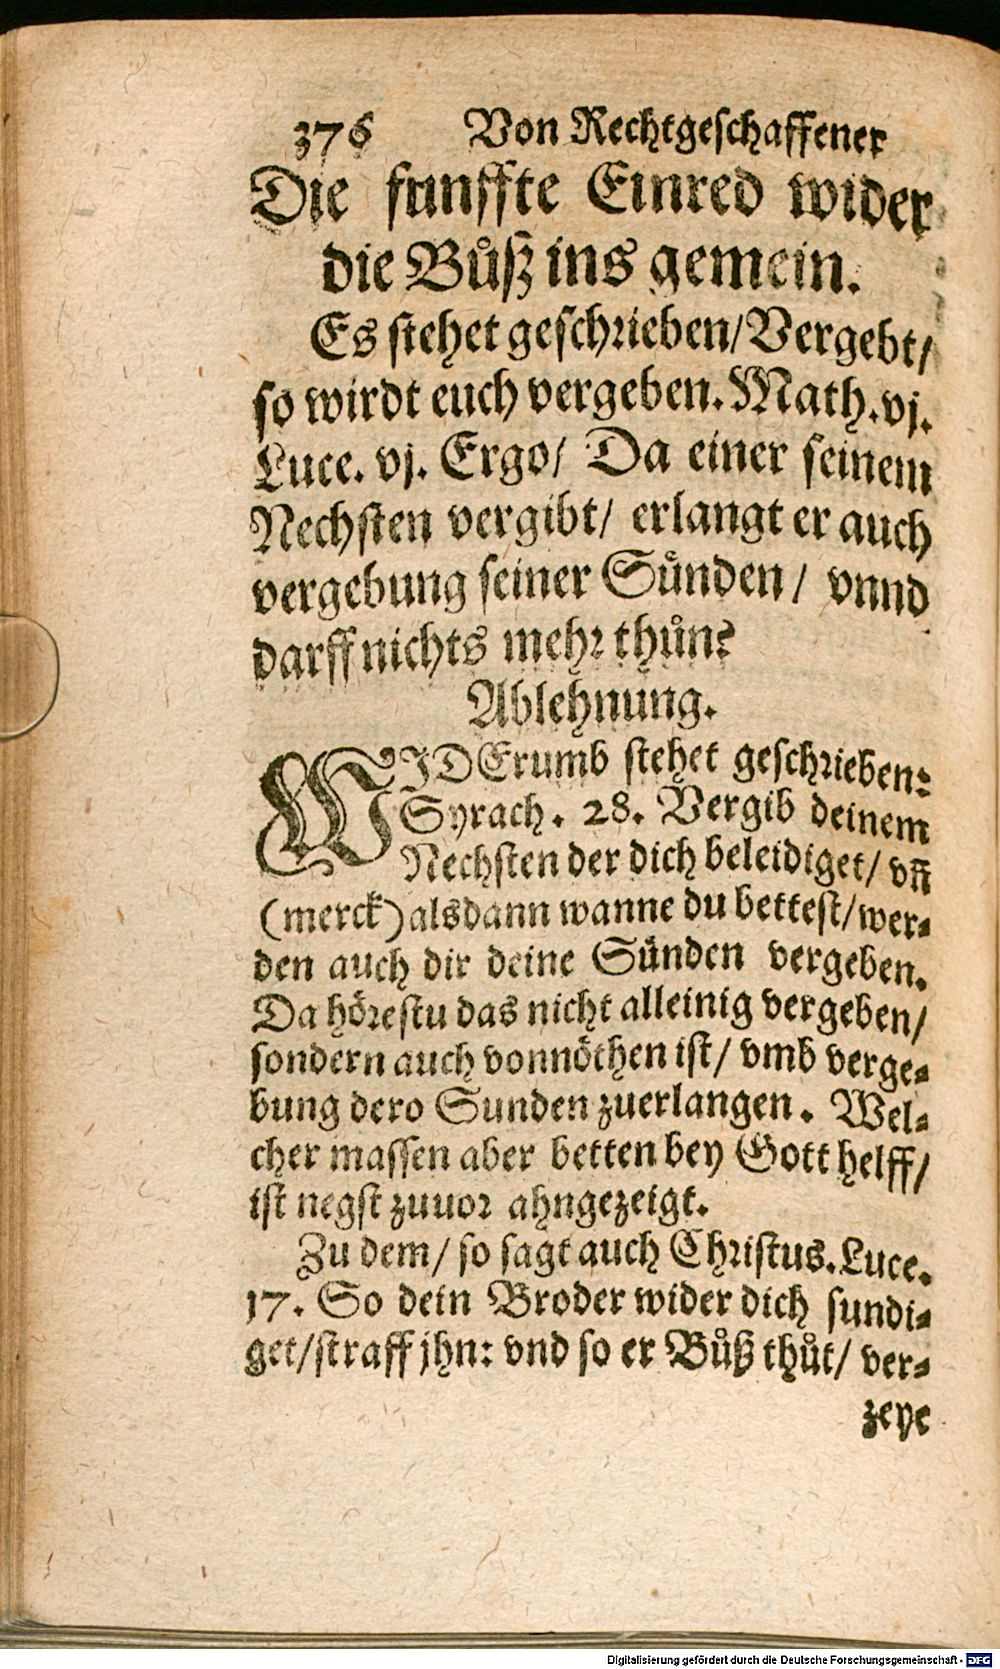 376 Von Rechtgeschaffener
Die funffte Einred wider
die Bůß ins gemein.
Es stehet geschrieben/Vergebt/
so wirdt euch vergeben. Math. vj.
Luce. vj. Ergo/ Da einer seinem
Nechsten vergibt/ erlangt er auch
vergebung seiner Sünden/ vnnd
darff nichts mehr thůn?
Ablehnung.
WIDErumb stehet geschrieben:
Syrach. 28. Vergib deinem
Nechsten der dich beleidiget/ vñ
(merck) alsdann wanne du bettest/wer-
den auch dir deine Sünden vergeben.
Da hörestu das nicht alleinig vergeben/
sondern auch vonnöthen ist/ vmb verge-
bung dero Sunden zuerlangen. Wel-
cher massen aber betten bey Gott helff/
ist negst zuuor ahngezeigt.
Zu dem/ so sagt auch Christus. Luce.
17. So dein Broder wider dich sundi-
get/straff jhn: vnd so er Bůß thůt/ ver-
zeye
Digitalisierung gefördert durch die Deutsche Forschungsgemeinschaft - DFG